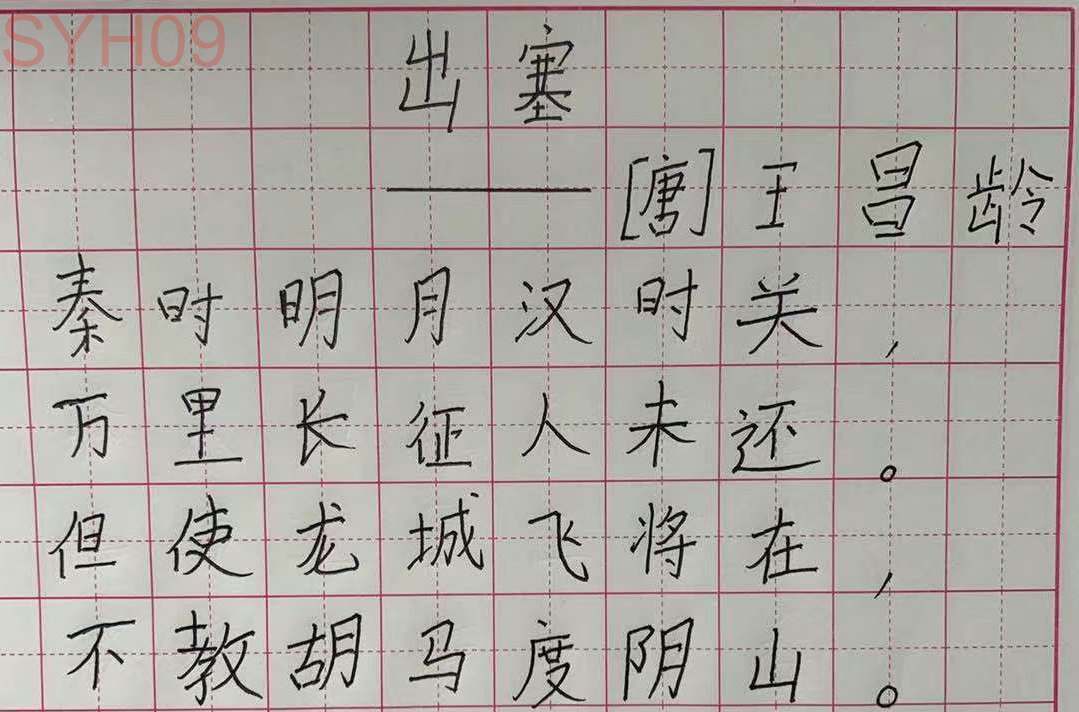 SYH09
出塞
——[唐]王昌龄
秦时明月汉时关,
万里长征人未还。
但使龙城飞将在,
不教胡马度阴山。